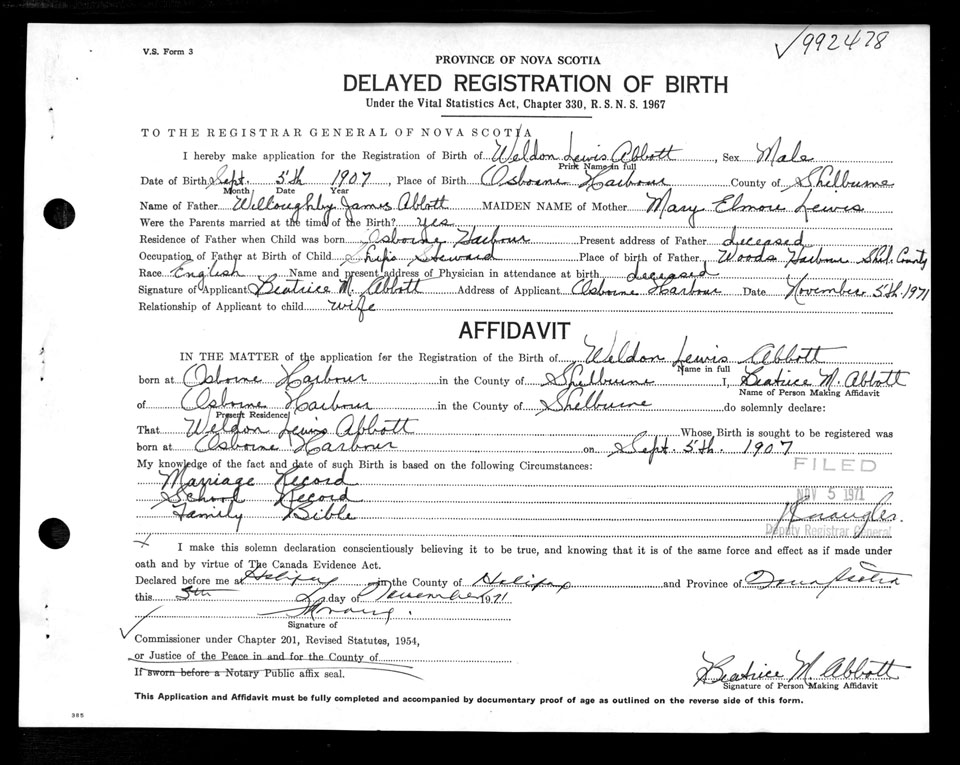 V.S. Form 3
✓992478
PROVINCE OF NOVA SCOTIA
DELAYED REGISTRATION OF BIRTH
Under the Vital Statistics Act, Chapter 330, R. S. N. S. 1967
TO THE REGISTRAR GENERAL OF NOVA SCOTIA
I hereby make application for the Registration of Birth of Weldon Lewis Abbott, Sex Male
Print Name in full
Date of Birth Sept. 5th 1907, Place of Birth Osborne Harbour County of Shelburne
Month Date Year
Name of Father Willoughby James Abbott MAIDEN NAME of Mother Mary Elmore Lewis
Were the Parents married at the time of the Birth? Yes
Residence of Father when Child was born Osborne Harbour Present address of Father deceased
Occupation of Father at Birth of Child Ship's Steward Place of birth of Father Woods Harbour Shel. County
Race English Name and present address of Physician in attendance at birth deceased
Signature of Applicant Beatrice M. Abbott Address of Applicant Osborne Harbour Date November 5th 1971
Relationship of Applicant to child wife
AFFIDAVIT
IN THE MATTER of the application for the Registration of the Birth of Weldon Lewis Abbott
Name in full
born at Osborne Harbour in the County of Shelburne I, Beatrice M. Abbott
Name of Person Making Affidavit
of Osborne Harbour in the County of Shelburne do solemnly declare:
Present Residence
That Weldon Lewis Abbott Whose Birth is sought to be registered was
born at Osborne Harbour on Sept. 5th. 1907
My knowledge of the fact and date of such Birth is based on the following Circumstances:
FILED
Marriage Record
School Record
NOV 5 1971
Family Bible
Deputy Registrar General
I make this solemn declaration conscientiously believing it to be true, and knowing that it is of the same force and effect as if made under
oath and by virtue of The Canada Evidence Act.
Declared before me at Halifax in the County of Halifax and Province of Nova Scotia
this 5th day of November 1971
Signature of
Commissioner under Chapter 201, Revised Statutes, 1954,
or Justice of the Peace in and for the County of
If sworn before a Notary Public affix seal.
Beatrice M. Abbott
Signature of Person Making Affidavit
This Application and Affidavit must be fully completed and accompanied by documentary proof of age as outlined on the reverse side of this form.
385